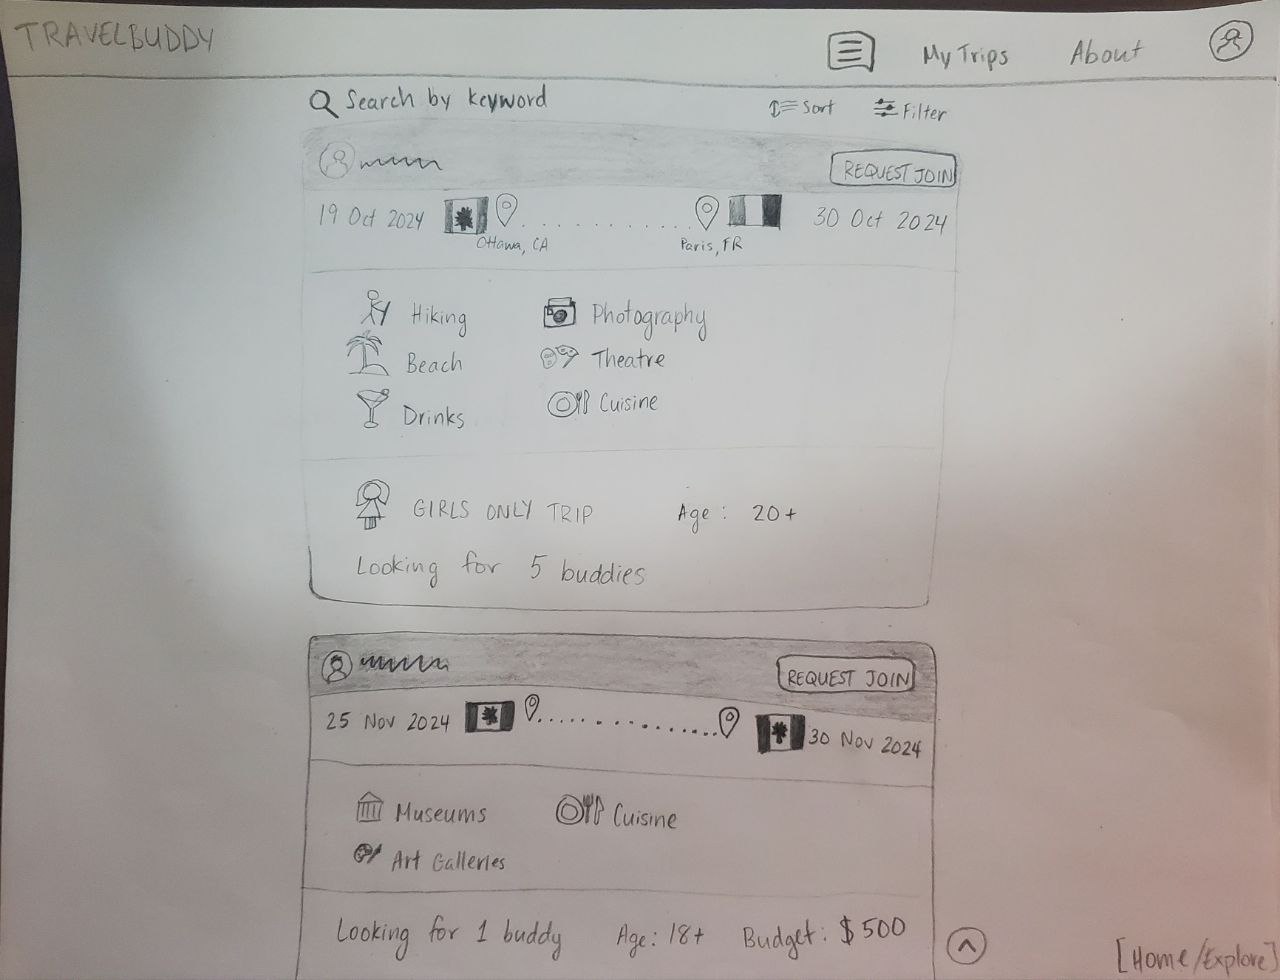 TRAVELBUDDY
My Trips About
Search by keyword
Sort Filter
REQUEST JOIN
19 Oct 2024 30 Oct 2024
Ottawa, CA Paris, FR
Hiking Photography
Beach Theatre
Drinks Cuisine
GIRLS ONLY TRIP Age: 20+
Looking for 5 buddies
REQUEST JOIN
25 Nov 2024 30 Nov 2024
Museums Cuisine
Art Galleries
Looking for 1 buddy Age: 18+ Budget: $500
[Home/Explore]